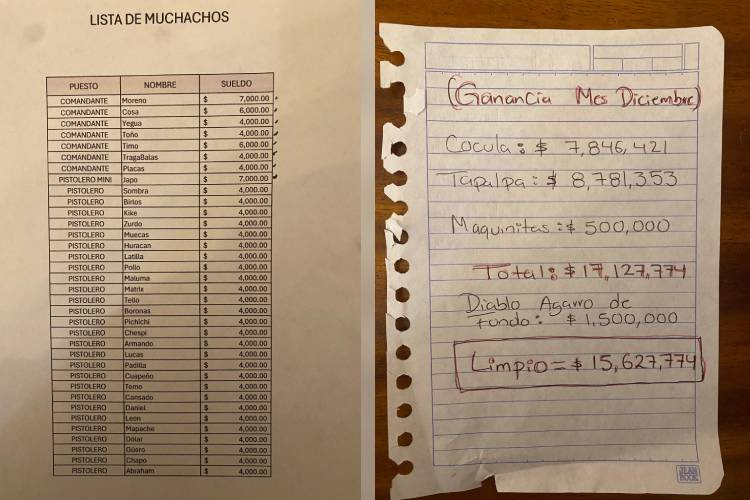 LISTA DE MUCHACHOS
PUESTO NOMBRE SUELDO
COMANDANTE Moreno $ 7,000.00
COMANDANTE Cosa $ 6,000.00
COMANDANTE Yegua $ 4,000.00
COMANDANTE Toño $ 4,000.00
COMANDANTE Timo $ 6,000.00
COMANDANTE TragaBalas $ 4,000.00
COMANDANTE Placas $ 4,000.00
PISTOLERO MINI Japo $ 7,000.00
PISTOLERO Sombra $ 4,000.00
PISTOLERO Birlos $ 4,000.00
PISTOLERO Kike $ 4,000.00
PISTOLERO Zurdo $ 4,000.00
PISTOLERO Muecas $ 4,000.00
PISTOLERO Huracan $ 4,000.00
PISTOLERO Latilla $ 4,000.00
PISTOLERO Pollo $ 4,000.00
PISTOLERO Maluma $ 4,000.00
PISTOLERO Matrix $ 4,000.00
PISTOLERO Tello $ 4,000.00
PISTOLERO Boronas $ 4,000.00
PISTOLERO Pichichi $ 4,000.00
PISTOLERO Chespi $ 4,000.00
PISTOLERO Armando $ 4,000.00
PISTOLERO Lucas $ 4,000.00
PISTOLERO Padilla $ 4,000.00
PISTOLERO Cuapeño $ 4,000.00
PISTOLERO Temo $ 4,000.00
PISTOLERO Cansado $ 4,000.00
PISTOLERO Daniel $ 4,000.00
PISTOLERO Leon $ 4,000.00
PISTOLERO Mapache $ 4,000.00
PISTOLERO Dólar $ 4,000.00
PISTOLERO Güero $ 4,000.00
PISTOLERO Chapo $ 4,000.00
PISTOLERO Abraham $ 4,000.00
(Ganancia Mes Diciembre)
Cocula: $ 7,846,421
Tapalpa: $ 8,781,353
Maquinitas: $ 500,000
Total: $ 17,127,774
Diablo Agarro de
Fondo: $ 1,500,000
Limpio = $ 15,627,774
JEAN BOOK